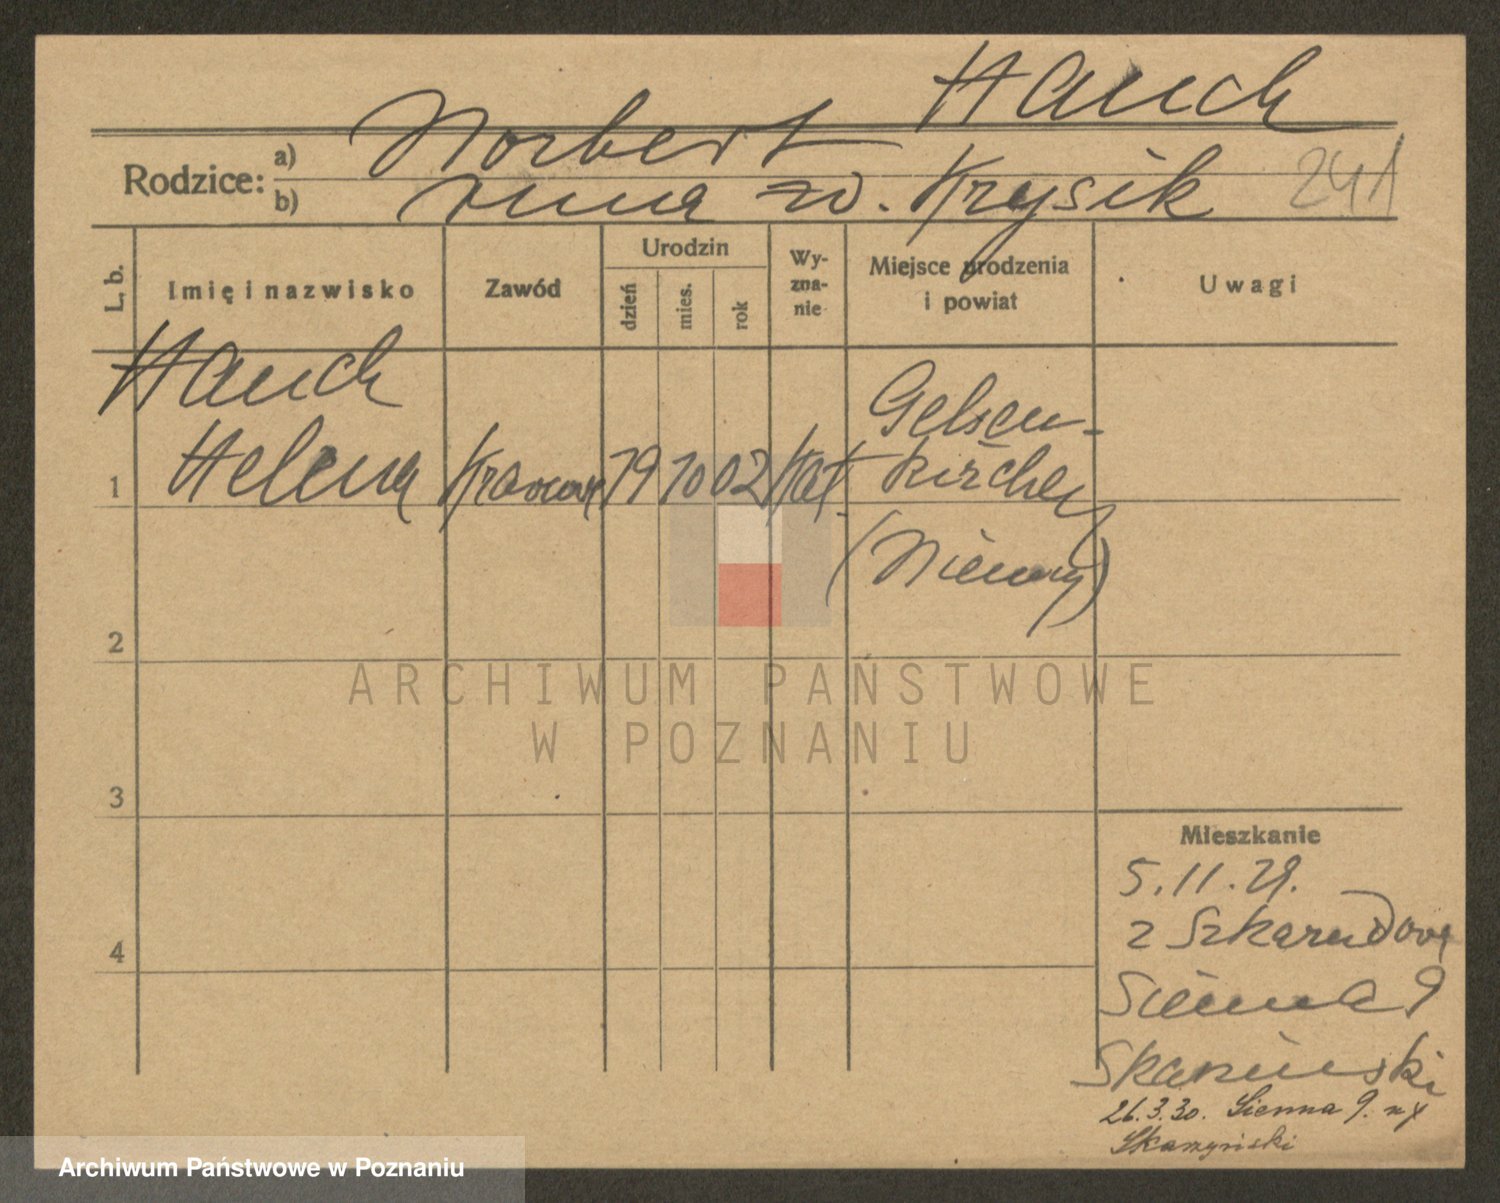 Hauch
Rodzice: a) Norbert
b) Anna zd. Krysik 241
L. b. Imię i nazwisko Zawód Urodzin dzień mies. rok Wyznanie Miejsce urodzenia i powiat Uwagi
Hauch
1 Helena Krawcowa 19 10 02 kat Gelsen-
kirchen
(Niemcy)
2
3
4
Mieszkanie
5.11.29.
z Szkaradowa
Sienna 9
Skarzinski
26.3.30. Sienna 9.
Skarzyński
ARCHIWUM PAŃSTWOWE
W POZNANIU
Archiwum Państwowe w Poznaniu